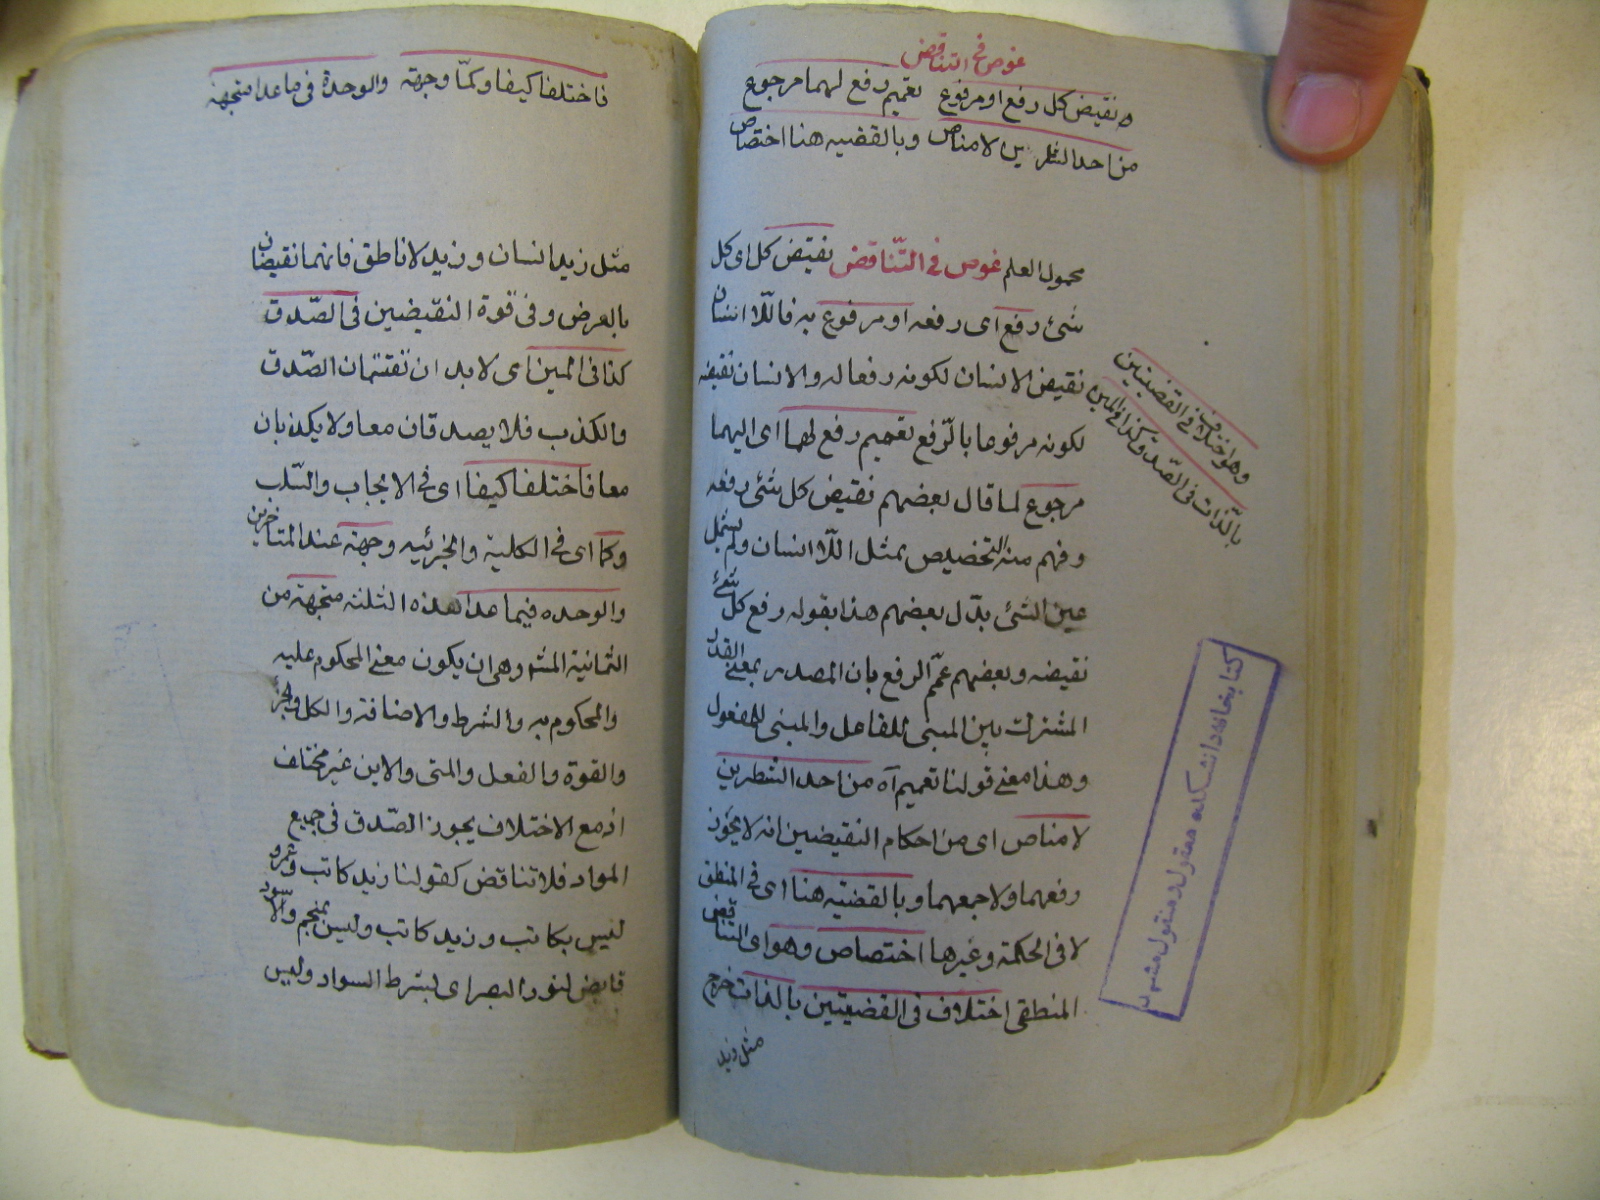 غوص فی التناقض
نقیض کل رفع او مرفوع تعمیم رفع لهما مرجوع
من احد الشطرین لا مناص و بالقضیه هنا اختصاص
محمول العلم غوص فی التّناقض نقیض کل ای کل
شئ رفع ای رفعه او مرفوع به فاللّا انسان
نقیض الانسان لکونه رفعا له و الانسان نقیضه
لکونه مرفوعا بالرّفع تعمیم رفع لهما ای الیهما
مرجوع لما قال بعضهم نقیض کل شئ رفعه
و فهم منه التخصیص بمثل اللّا انسان و لم یشمل
عین الشئ بدّل بعضهم هذا بقوله رفع کل شئ
نقیضه و بعضهم عمّم الرفع بان المصدر بمعنی القدر
المشترک بین المبنی للفاعل و المبنی للمفعول
و هذا معنی قولنا تعمیم آه من احد الشطرین
لا مناص ای من احکام النقیضین انه لا یجوز
رفعهما و لا جمعهما و بالقضیّه هنا ای فی المنطق
لا فی الحکمة و غیرها اختصاص و هو ای التناقض
المنطقی اختلاف فی القضیتین بالذات خرج
مثل زید
و هو اختلاف فی القضیتین
بالّذات فی الصّدق کذا فی المین
کتابخانه دانشکده معقول و منقول مشهد
فاختلفا کیفا و کمّا وجهة والوحدة فی ما عدا متجهة
مثل زید انسان و زید لا ناطق فانهما نقیضان
بالعرض و فی قوة النقیضین فی الصّدق
کذا فی المین ای لا بد ان تقتسمان الصّدق
والکذب فلا یصدقان معا و لا یکذبان
معا فاختلفا کیفا ای فی الایجاب والسّلب
و کما ای فی الکلیة والجزئیه وجهة عند المتاخرین
والوحده فیما عدا هذه الثلثه متجهة من
الثمانیة المش و هی ان یکون معنی المحکوم علیه
والمحکوم به والشرط والاضافة والکل والجزء
والقوة والفعل والمتی والاین غیر مختلف
اذ مع الاختلاف یجوز الصّدق فی جمیع
المواد فلا تناقض کقولنا زید کاتب و عمرو
لیس بکاتب و زید کاتب و لیس بمنجم والاسود
قابض لنور البصر ای بشرط السواد و لیس